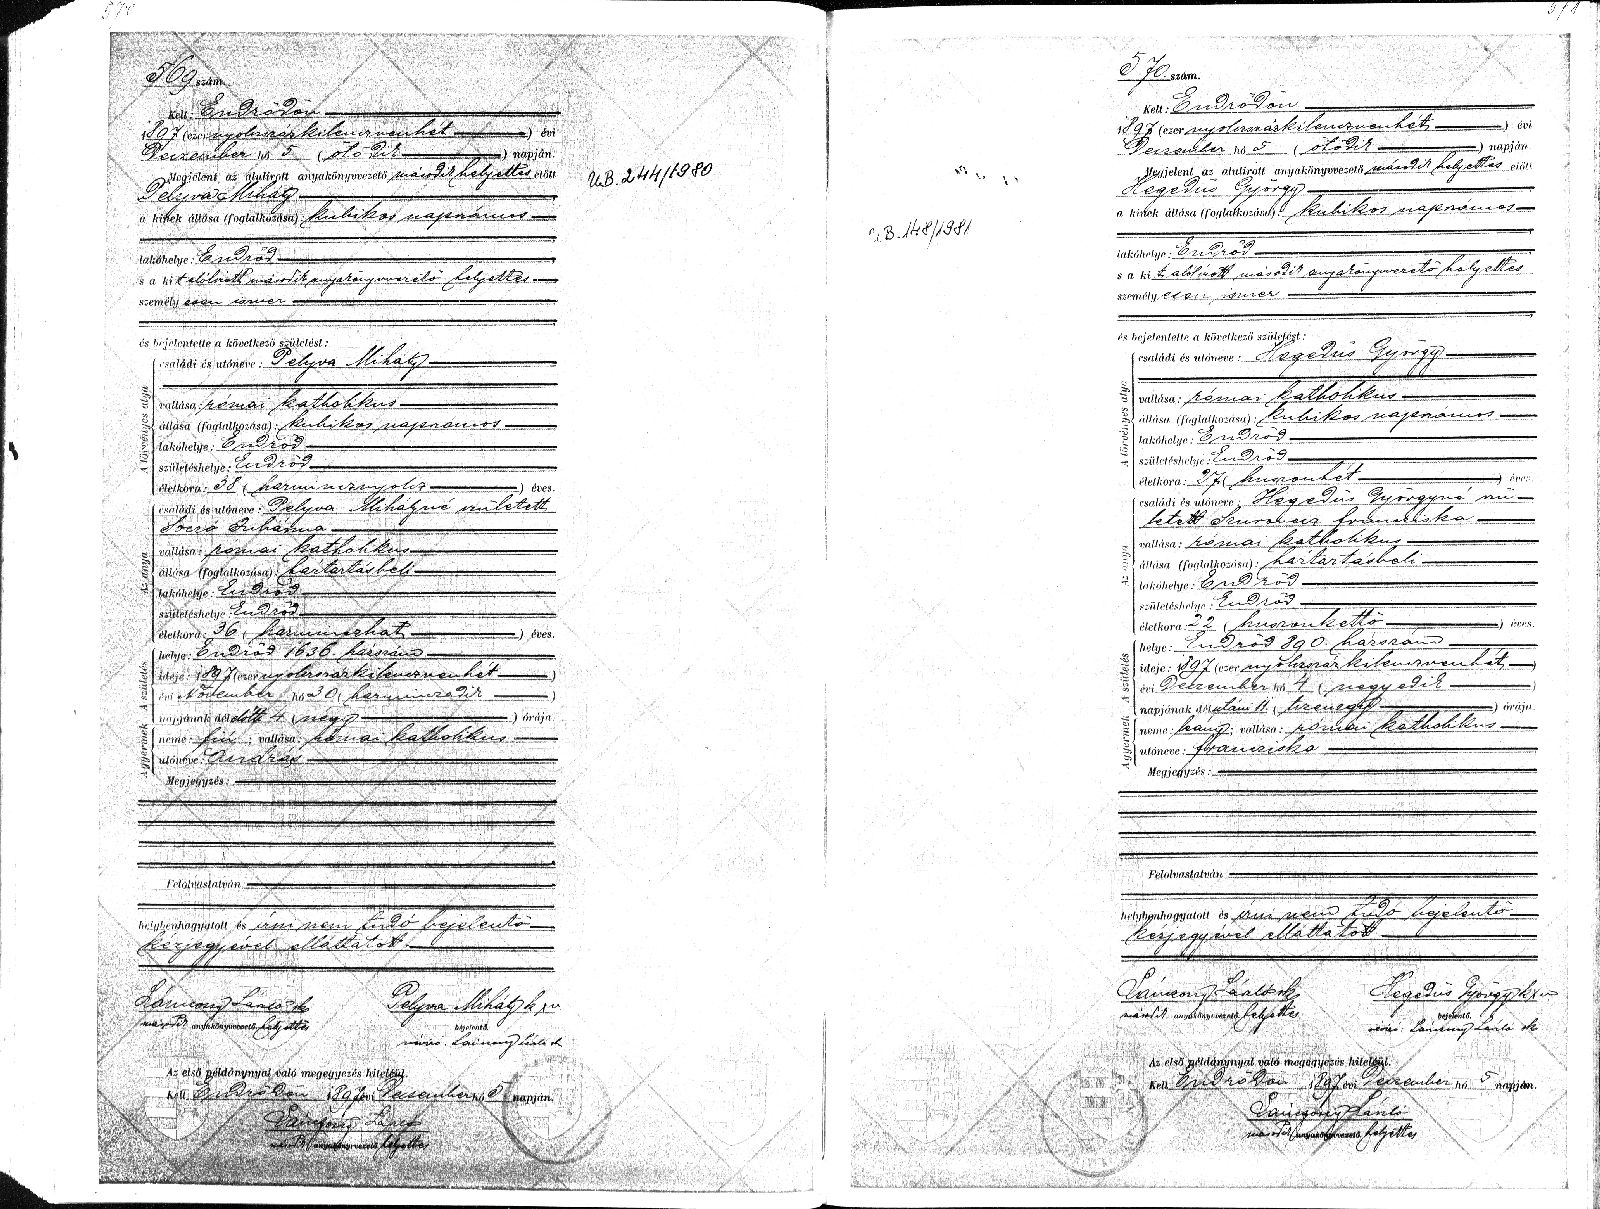 569 szám.
Kelt: Endrődön
1897 (ezer nyolczszázkilenczvenhét) évi
Deczember hó 5 (ötödik) napján.
Megjelent az alulirott anyakönyvvezető második helyettes előtt
Pelyva Mihály
a kinek állása (foglalkozása): kubikos napszámos
lakóhelye: Endrőd
s a kit alólirott második anyakönyvvezető helyettes
személyesen ismer
és bejelentette a következő születést:
A törvényes atya
családi és utóneve: Pelyva Mihály
vallása: római katholikus
állása (foglalkozása): kubikos napszámos
lakóhelye: Endrőd
születéshelye: Endrőd
életkora: 38 (harmincznyolcz) éves.
Az anya
családi és utóneve: Pelyva Mihályné született
Soczó Juliánna
vallása: római katholikus
állása (foglalkozása): háztartásbeli
lakóhelye: Endrőd
születéshelye: Endrőd
életkora: 36 (harminczhat) éves.
A születés
helye: Endrőd 1636. házszám
ideje: 1897 (ezer nyolczszázkilenczvenhét)
évi November hó 30 (harminczadik)
napjának délelőtt 4 (négy) órája.
A gyermek
neme: fiú; vallása: római katholikus
utóneve: András
Megjegyzés:
Felolvastatván
helybenhagyatott és irni nem tudó bejelentő
kézjegyével elláttatott.
László sk
második anyakönyvvezető helyettes
Pelyva Mihály k x v
bejelentő.
Az első példánynyal való megegyezés hiteléül.
Kelt Endrődön 1897 évi Deczember hó 5 napján.
László
második anyakönyvvezető helyettes
U.B. 244/1980
570. szám.
Kelt: Endrődön
1897 (ezer nyolczszázkilenczvenhét) évi
Deczember hó 5 (ötödik) napján
Megjelent az alulirott anyakönyvvezető második helyettes előtt
Hegedüs György
a kinek állása (foglalkozása): kubikos napszámos
lakóhelye: Endrőd
s a kit alólirott második anyakönyvvezető helyettes
személyesen ismer
és bejelentette a következő születést:
A törvényes atya
családi és utóneve: Hegedüs György
vallása: római katholikus
állása (foglalkozása): kubikos napszámos
lakóhelye: Endrőd
születéshelye: Endrőd
életkora: 27 (huszonhét) éves.
Az anya
családi és utóneve: Hegedüs Györgyné szü-
letett Francziska
vallása: római katholikus
állása (foglalkozása): háztartásbeli
lakóhelye: Endrőd
születéshelye: Endrőd
életkora: 22 (huszonkettő) éves.
A születés
helye: Endrőd 890. házszám
ideje: 1897 (ezer nyolczszázkilenczvenhét)
évi Deczember hó 4 (negyedik)
napjának délutáni 11 (tizenegy) órája
A gyermek
neme: leány; vallása: római katholikus
utóneve: Francziska
Megjegyzés:
Felolvastatván
helybenhagyatott és irni nem tudó bejelentő
kézjegyével elláttatott
László sk
második anyakönyvvezető helyettes
Hegedüs György k x v
bejelentő.
Az első példánynyal való megegyezés hiteléül.
Kelt Endrődön 1897 évi Deczember hó 5 napján.
László
második anyakönyvvezető helyettes
B. 148/1981